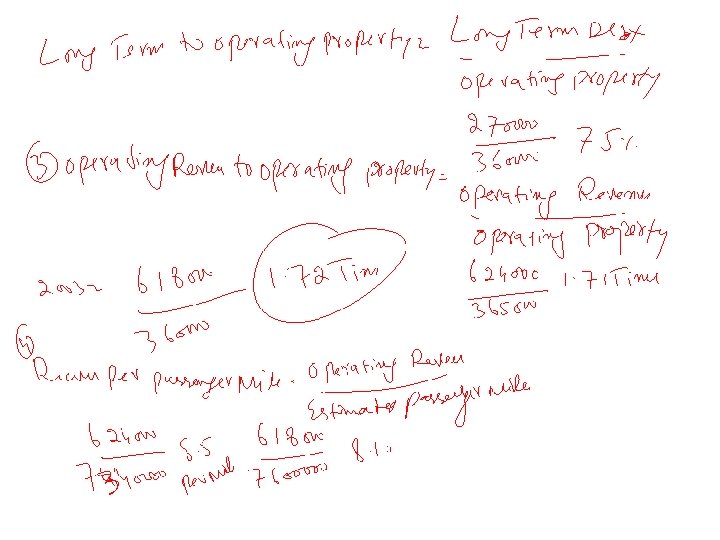 Long Term to operating property = Long Term Debt
operating property
270000
360000
75%
③ operating Revenue to operating property = operating Revenue
operating property
2003 = 618000
360000
1.72 Time
624000
365000
1.71 Times
④
Revenue per passenger mile = operating Revenue
Estimated passenger mile
624000
8.5
per mile
618000
7600000
8.1